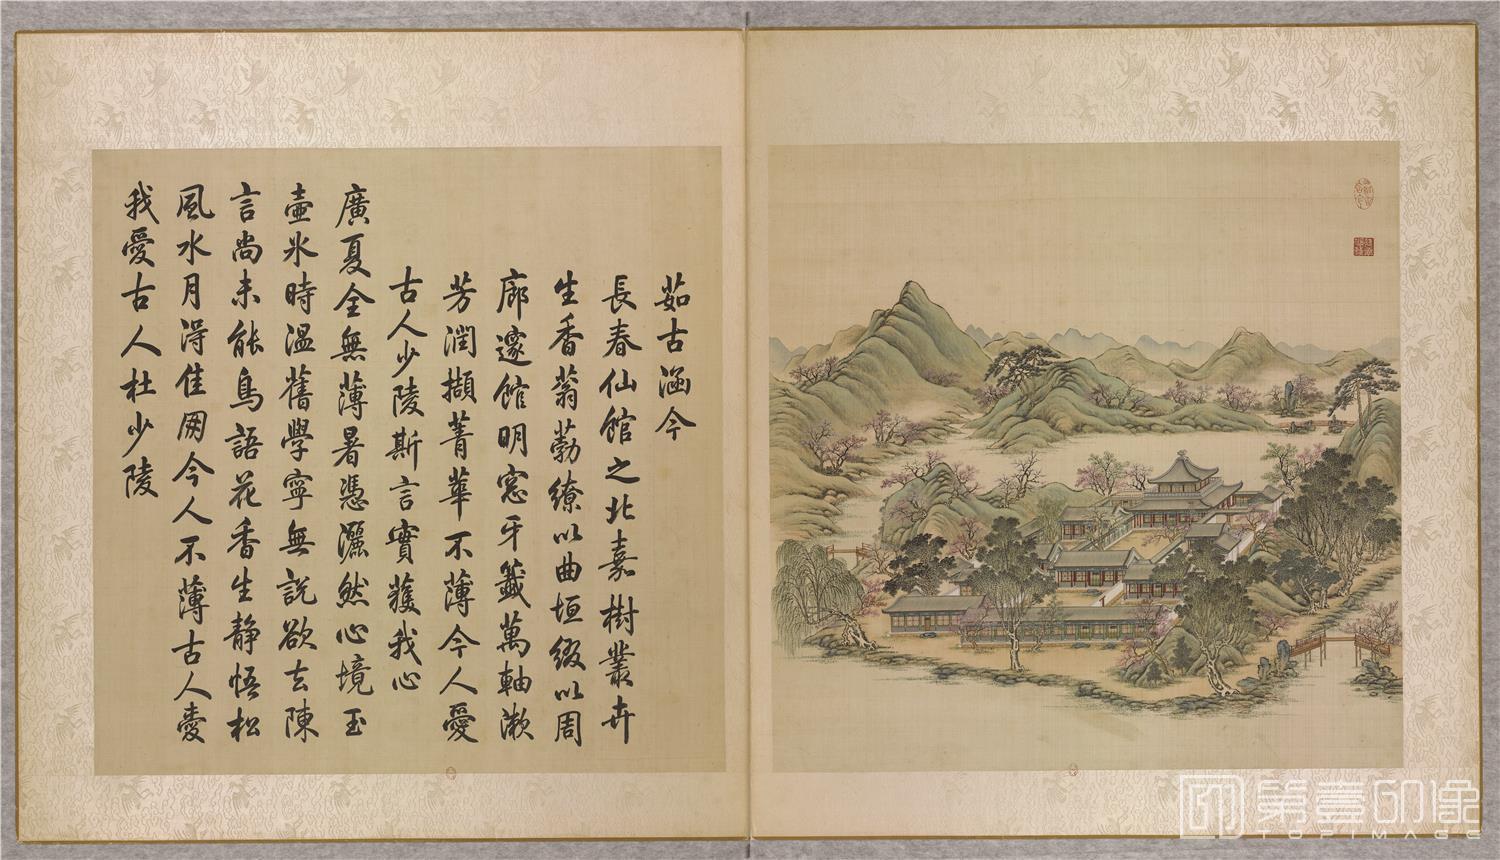 茹古涵今
長春仙館之北嘉樹叢卉
生香蓊葧繚以曲垣綴以周
廊邃館明窓牙籤萬軸漱
芳潤擷菁華不薄今人愛
古人少陵斯言實獲我心
廣夏全無薄暑憑灑然心境玉
壺氷時溫舊學寧無說欲去陳
言尚未能鳥語花香生靜悟松
風水月淂佳朋今人不薄古人愛
我愛古人杜少陵
第壹印像
TOPIMAGE